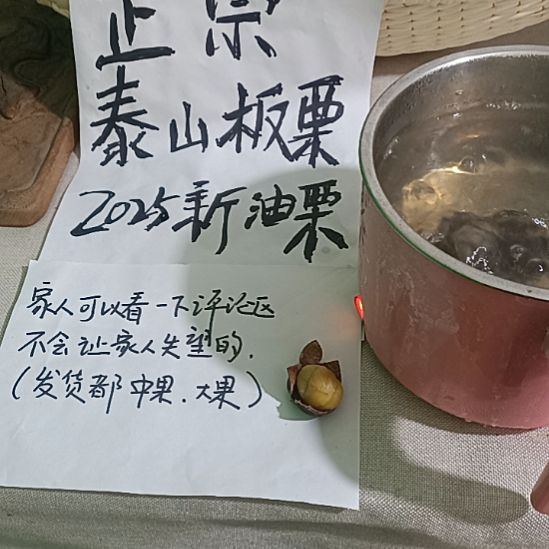 正宗
泰山板栗
2025新油栗
家人可以看一下评论区
不会让家人失望的.
(发货都中果.大果)